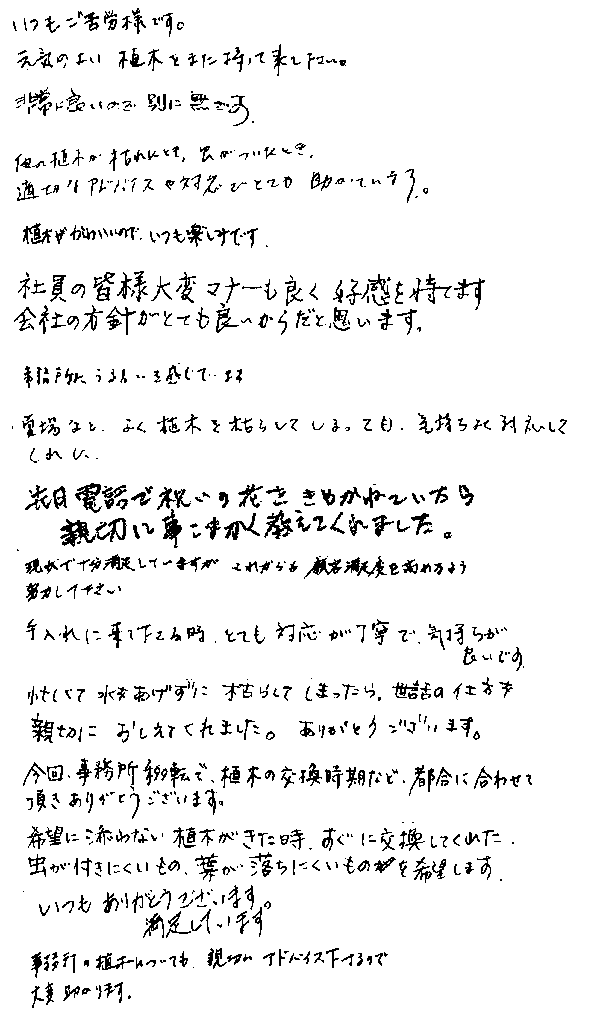 いつもご苦労様です。
元気のよい植木をまた持って来て下さい。
非常に良いので別に無です。
他の植木が枯れたとき、虫がついたとき、
適切なアドバイスや対応でとても助かっています。
植木がかわいいので、いつも楽しみです。
社員の皆様大変マナーも良く好感を持てます
会社の方針がとても良いからだと思います。
事務所にうるおいを感じています
夏場など、よく植木を枯らしてしまっても、気持ちよく対応して
くれた。
先日電話で祝いの花をききかねていたら
親切に事こまかく教えてくれました。
現状で十分満足していますが これからも顧客満足度を高めるよう
努力して下さい
手入れに来て下さる時、とても対応が丁寧で、気持ちが
良いです。
忙しくて水をあげずに枯らしてしまったら、世話の仕方を
親切におしえてくれました。ありがとうございます。
今回、事務所移転で、植木の交換時期など、都合に合わせて
頂きありがとうございます。
希望に添わない植木がきた時、すぐに交換してくれた。
虫が付きにくいもの、葉が落ちにくいものを希望します。
いつもありがとうございます。
満足しています。
事務所の植木についても、親切にアドバイス下さるので
大変助かります。